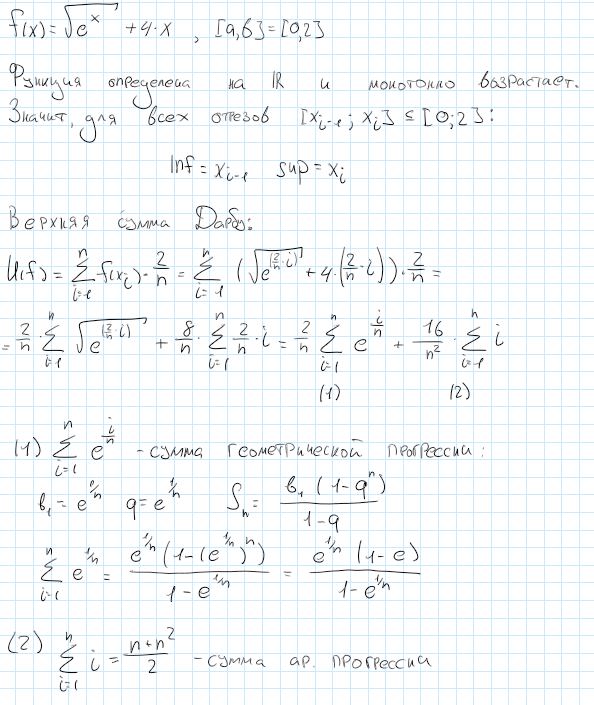 f(x) = √(e^x) + 4·x , [a,b] = [0,2]
Функция определена на ℝ и монотонно возрастает.
Значит, для всех отрезов [x_{i-1}; x_i] ≤ [0;2]:
Inf = x_{i-1} sup = x_i
Верхняя сумма Дарбу:
U(f) = ∑_{i=1}^{n} f(x_i) · 2/n = ∑_{i=1}^{n} (√(e^{(2/n · i)}) + 4·(2/n · i)) · 2/n =
= 2/n · ∑_{i=1}^{n} √(e^{(2/n · i)}) + 8/n · ∑_{i=1}^{n} 2/n · i = 2/n ∑_{i=1}^{n} e^{i/n} + 16/n² · ∑_{i=1}^{n} i
(1) (2)
(1) ∑_{i=1}^{n} e^{i/n} - сумма геометрической прогрессии:
b₁ = e^{1/n} q = e^{1/n} S_n = b₁ (1-q^n) / (1-q)
∑_{i=1}^{n} e^{1/n} = e^{1/n} (1-(e^{1/n})^n) / (1-e^{1/n}) = e^{1/n} (1-e) / (1-e^{1/n})
(2) ∑_{i=1}^{n} i = (n+n²)/2 - сумма ар. прогрессии